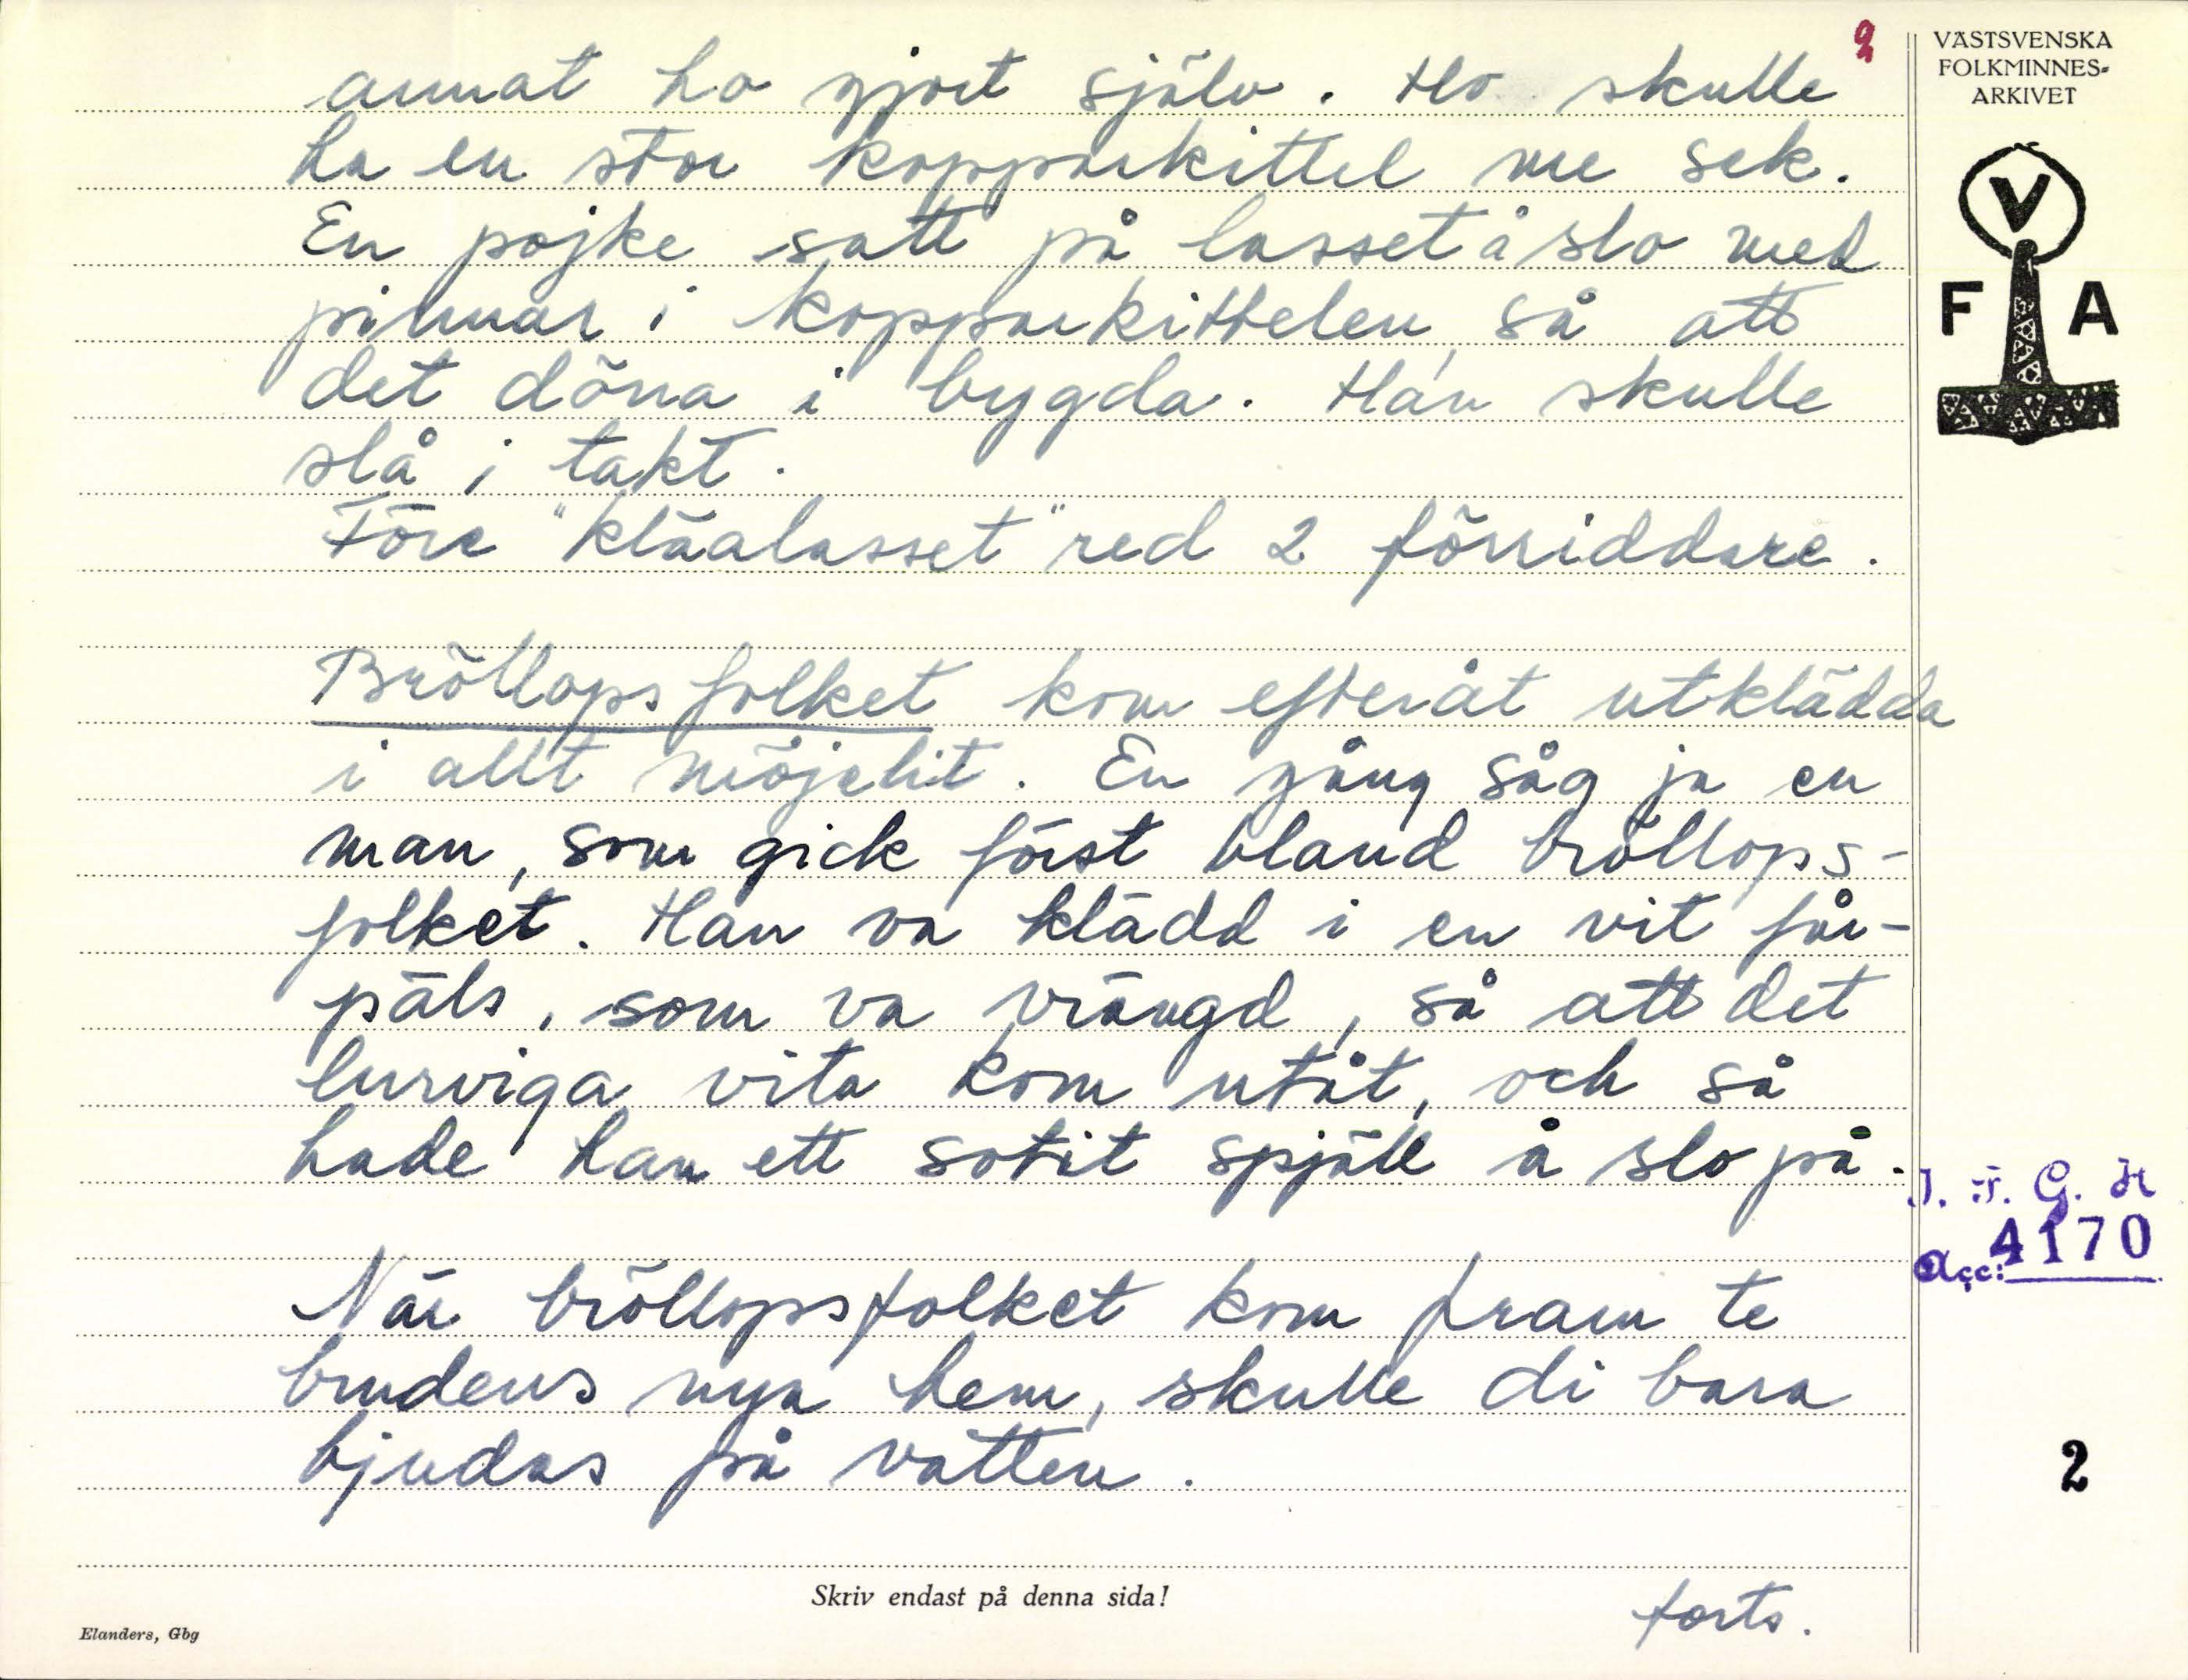 2
VÄSTSVENSKA
FOLKMINNES-
ARKIVET
V
F A
annat ho gjort själv. Ho skulle
ha en stor kopparkittel me sek.
En pojke satt på lasset å slo med
pinnar i kopparkittelen, så att
det döna i bygda. Han skulle
slå i takt.
Före "kläalasset" red 2 förriddare.
Bröllopsfolket kom efteråt utklädda
i allt möjelit. En gång såg ja en
man, som gick först bland bröllops-
folket. Han va klädd i en vit får-
päls, som va vrängd, så att det
lurviga vita kom utåt, och så
hade han ett sotit spjäll å slo på.
När bröllopsfolket kom fram te
brudens nya hem, skulle di bara
bjudas på vatten.
I. F. G. H
Acc: 4170
2
Skriv endast på denna sida!
forts.
Elanders, Gbg